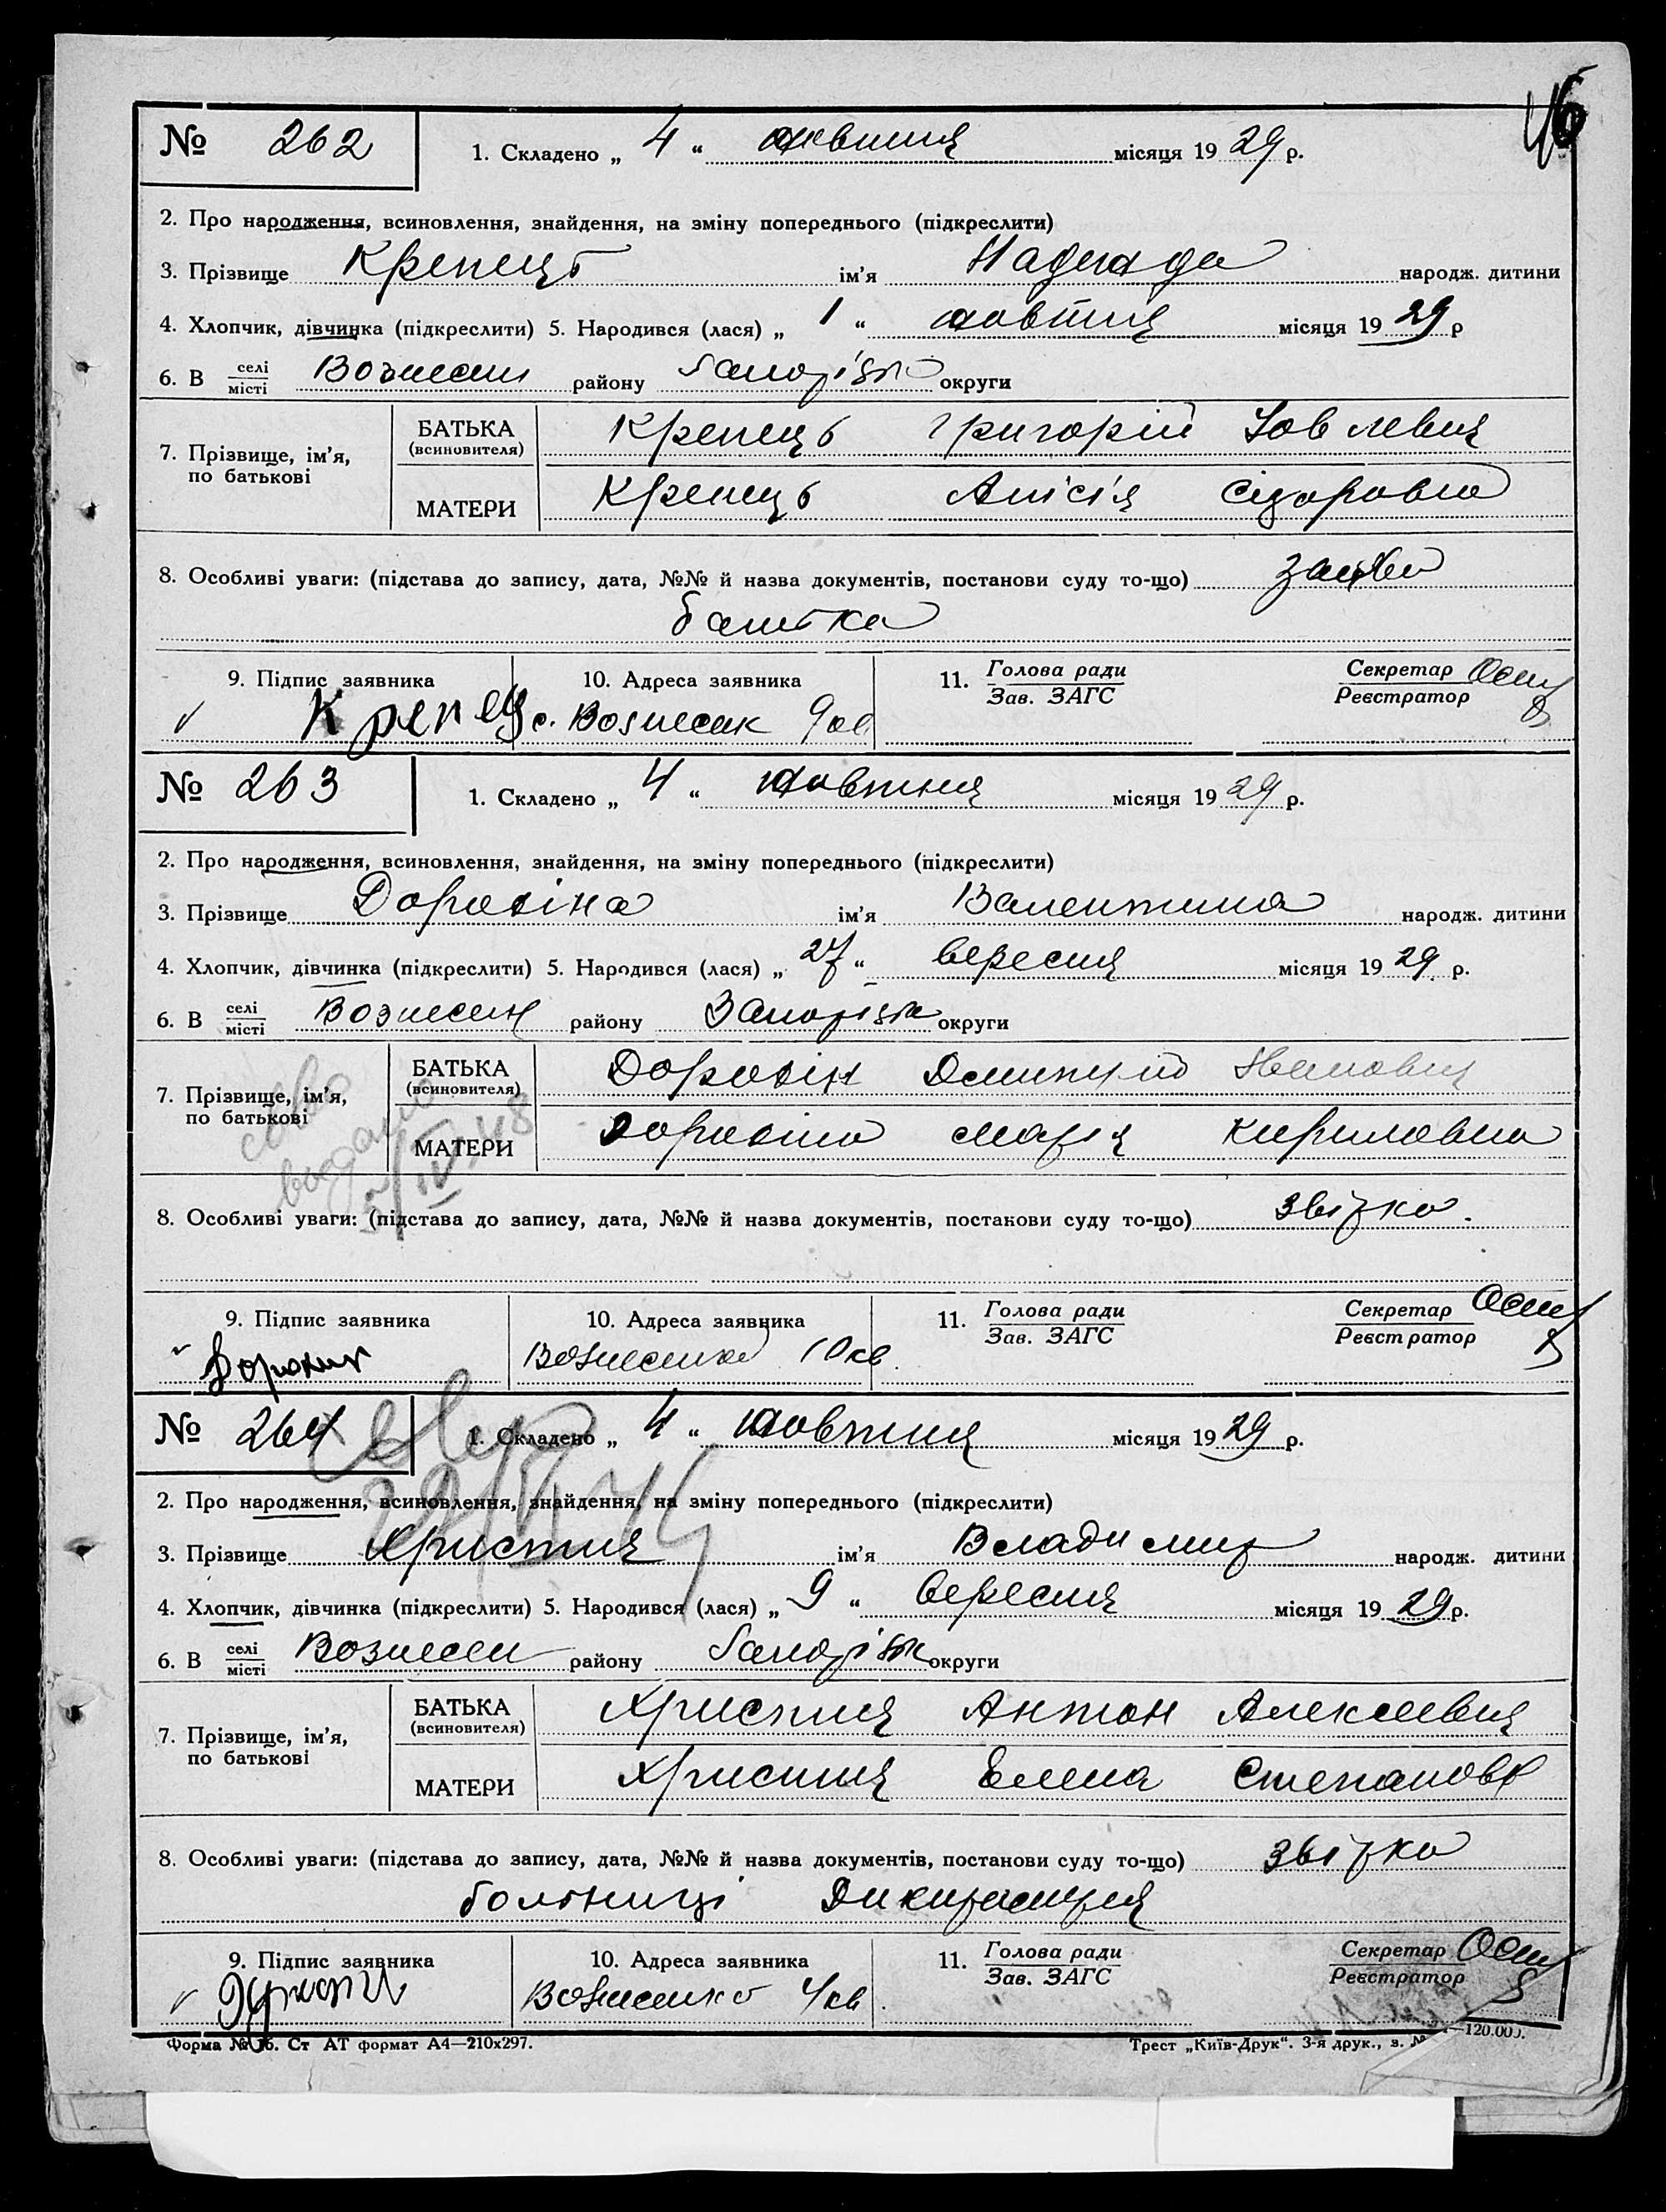 46
№ 262 1. Складено „ 4 “ жовтня місяця 1929 р.
2. Про народження, всиновлення, знайдення, на зміну попереднього (підкреслити)
3. Прізвище Крепець ім’я Надежда народж. дитини
4. Хлопчик, дівчинка (підкреслити) 5. Народився (лася) „ 1 “ жовтня місяця 1929 р
6. В селі/місті Вознесен району Запорізьк округи
7. Прізвище, ім’я, по батькові
БАТЬКА (всиновителя) Крепець Григорій
МАТЕРИ Крепець Анісія Сідоровна
8. Особливі уваги: (підстава до запису, дата, №№ й назва документів, постанови суду то-що) заява
батька
9. Підпис заявника 10. Адреса заявника 11. Голова ради/Зав. ЗАГС Секретар/Реєстратор
Крепец с. Вознесенк 9 кв
№ 263 1. Складено „ 4 “ жовтня місяця 1929 р.
2. Про народження, всиновлення, знайдення, на зміну попереднього (підкреслити)
3. Прізвище Дорохіна ім’я Валентина народж. дитини
4. Хлопчик, дівчинка (підкреслити) 5. Народився (лася) „ 27 “ вересня місяця 1929 р.
6. В селі/місті Вознесен району Запорізьк округи
7. Прізвище, ім’я, по батькові
БАТЬКА (всиновителя) Дорохін Дмитрий Иванович
МАТЕРИ Дорохіна Марія Кириловна
8. Особливі уваги: (підстава до запису, дата, №№ й назва документів, постанови суду то-що) звістка.
9. Підпис заявника 10. Адреса заявника 11. Голова ради/Зав. ЗАГС Секретар/Реєстратор
Дорохин Вознесенка 10 кв.
№ 264 1. Складено „ 4 “ жовтня місяця 1929 р.
2. Про народження, всиновлення, знайдення, на зміну попереднього (підкреслити)
3. Прізвище Христич ім’я Владимир народж. дитини
4. Хлопчик, дівчинка (підкреслити) 5. Народився (лася) „ 9 “ вересня місяця 1929 р.
6. В селі/місті Вознесен району Запорізьк округи
7. Прізвище, ім’я, по батькові
БАТЬКА (всиновителя) Христич Антон Алексеевич
МАТЕРИ Христич Елена Степанов
8. Особливі уваги: (підстава до запису, дата, №№ й назва документів, постанови суду то-що) звістка
больниці
9. Підпис заявника 10. Адреса заявника 11. Голова ради/Зав. ЗАГС Секретар/Реєстратор
Вознесенка 4 кв.
Форма № 16. Ст АТ формат А4—210х297. Трест „Київ-Друк“. 3-я друк., з. —120.000.